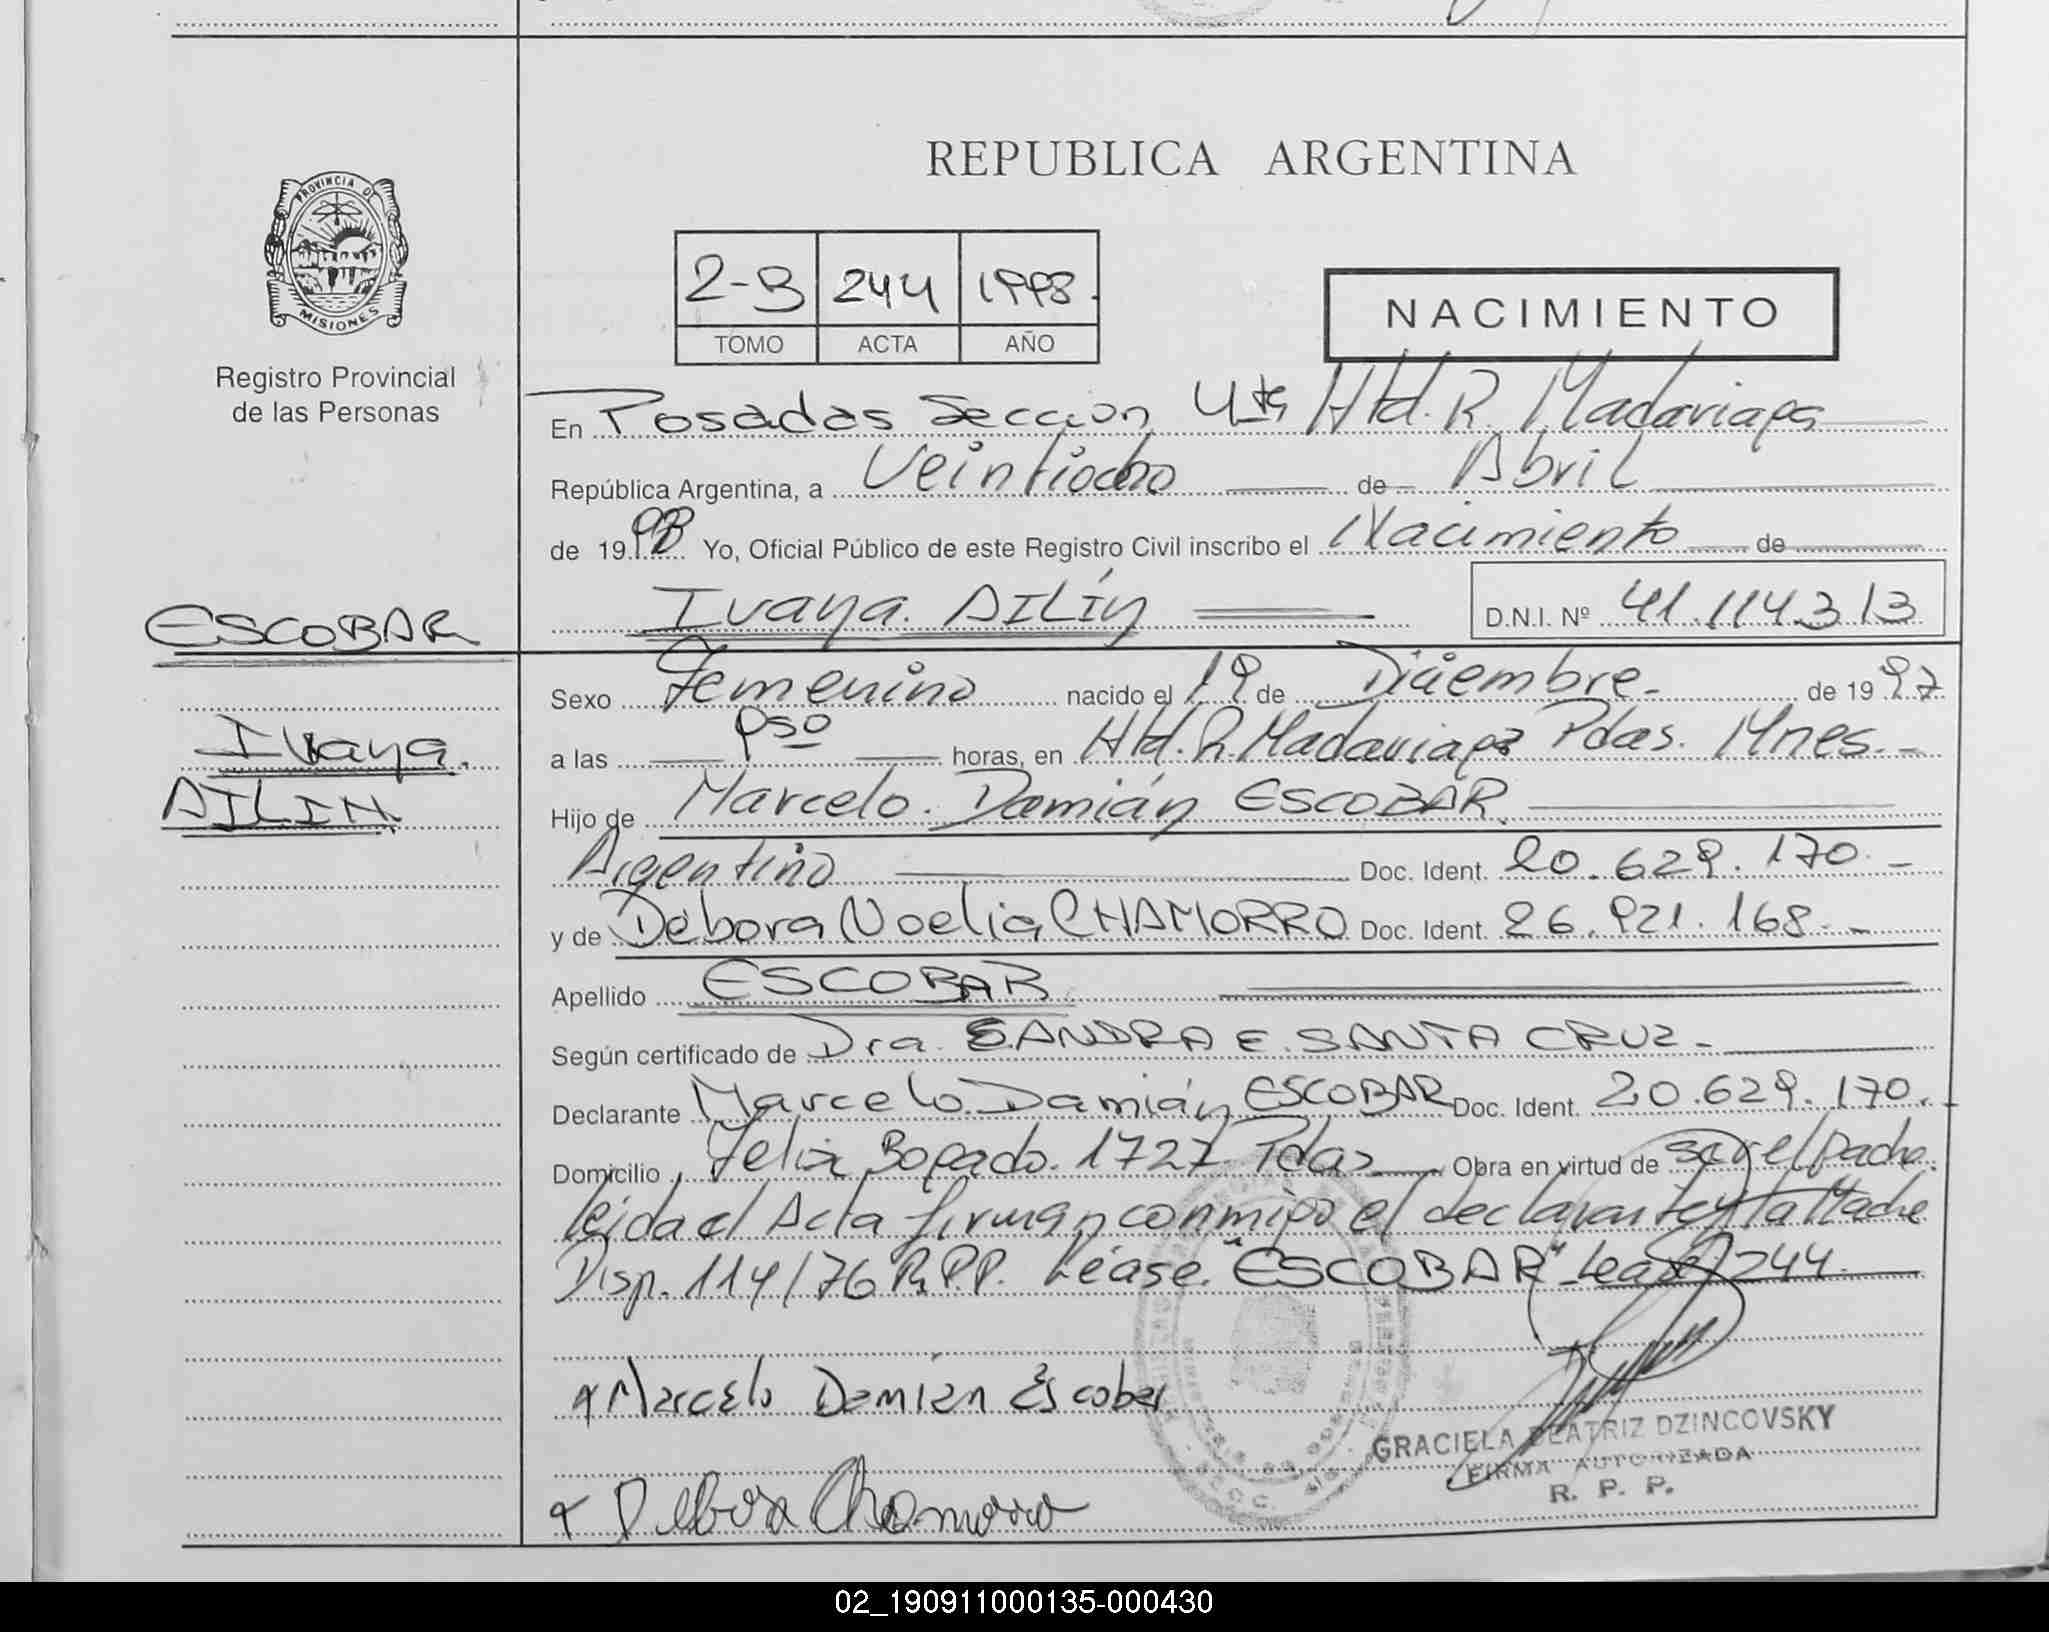 REPUBLICA ARGENTINA
PROVINCIA DE
MISIONES
Registro Provincial
de las Personas
2-B 244 1998.
TOMO ACTA AÑO
NACIMIENTO
En Posadas Sección 4ta Htal. R. Madariaga
República Argentina, a Veintiocho de Abril
de 1998 Yo, Oficial Público de este Registro Civil inscribo el Nacimiento de
Ivana. AILÍN D.N.I. Nº 41.114.313
ESCOBAR
Ivana.
AILIN.
Sexo Femenino nacido el 19 de Diciembre. de 1997
a las pso horas, en Htal. R. Madariaga Pdas. Mnes.-
Hijo de Marcelo. Damián ESCOBAR.
Argentino Doc. Ident. 20.629.170.-
y de Débora Noelia CHAMORRO Doc. Ident. 26.921.168.-
Apellido ESCOBAR
Según certificado de Dra. SANDRA E. SANTA CRUZ.-
Declarante Marcelo. Damián ESCOBAR Doc. Ident. 20.629.170.-
Domicilio Felix Bogado. 1727 Pdas Obra en virtud de ser el padre.
leida el Acta firman conmigo el declarante y la Madre
Disp. 114/76 R.P.P. Léase. "ESCOBAR" Lease 244.
Marcelo Damián Escobar
GRACIELA BEATRIZ DZINCOVSKY
FIRMA AUTORIZADA
R. P. P.
Debora Chamorro
02_190911000135-000430